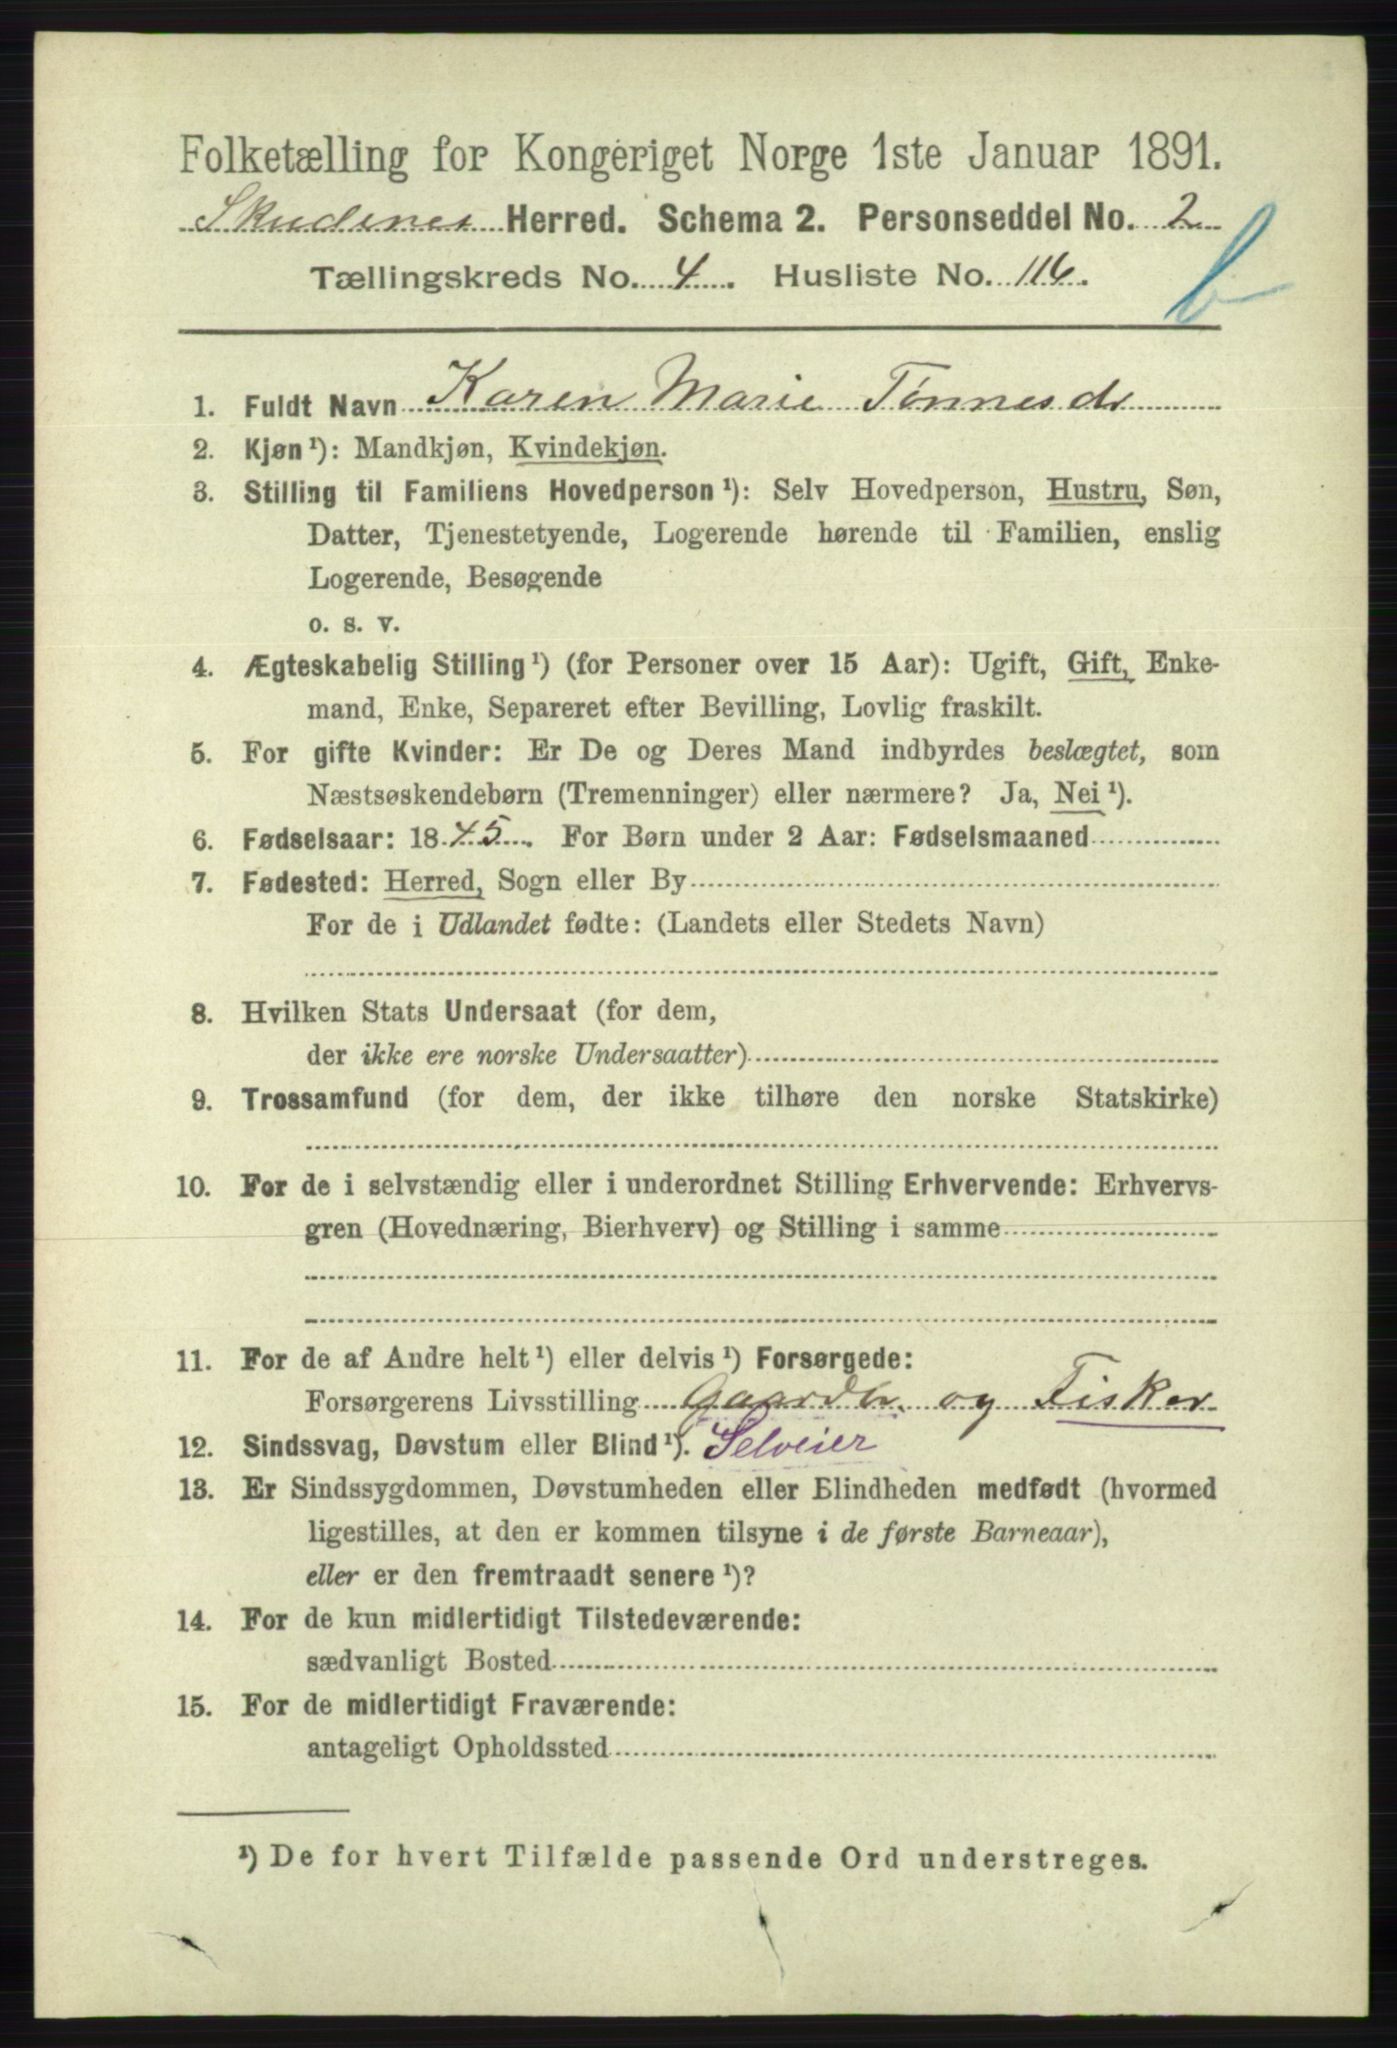 Folketælling for Kongeriget Norge 1ste Januar 1891.
Skudenes Herred. Schema 2. Personseddel No. 2
b
Tællingskreds No. 4. Husliste No. 116.
1. Fuldt Navn Karen Marie Tønnesdr
2. Kjøn¹): Mandkjøn, Kvindekjøn.
3. Stilling til Familiens Hovedperson¹): Selv Hovedperson, Hustru, Søn,
Datter, Tjenestetyende, Logerende hørende til Familien, enslig
Logerende, Besøgende
o. s. v.
4. Ægteskabelig Stilling¹) (for Personer over 15 Aar): Ugift, Gift, Enke-
mand, Enke, Separeret efter Bevilling, Lovlig fraskilt.
5. For gifte Kvinder: Er De og Deres Mand indbyrdes beslægtet, som
Næstsøskendebørn (Tremenninger) eller nærmere? Ja, Nei¹).
6. Fødselsaar: 1845. For Børn under 2 Aar: Fødselsmaaned
7. Fødested: Herred, Sogn eller By
For de i Udlandet fødte: (Landets eller Stedets Navn)
8. Hvilken Stats Undersaat (for dem,
der ikke ere norske Undersaatter)
9. Trossamfund (for dem, der ikke tilhøre den norske Statskirke)
10. For de i selvstændig eller i underordnet Stilling Erhvervende: Erhvervs-
gren (Hovednæring, Bierhverv) og Stilling i samme
11. For de af Andre helt¹) eller delvis¹) Forsørgede:
Forsørgerens Livsstilling Gaardbr. og Fisker
12. Sindssvag, Døvstum eller Blind¹). Selveier
13. Er Sindssygdommen, Døvstumheden eller Blindheden medfødt (hvormed
ligestilles, at den er kommen tilsyne i de første Barneaar),
eller er den fremtraadt senere¹)?
14. For de kun midlertidigt Tilstedeværende:
sædvanligt Bosted
15. For de midlertidigt Fraværende:
antageligt Opholdssted
¹) De for hvert Tilfælde passende Ord understreges.